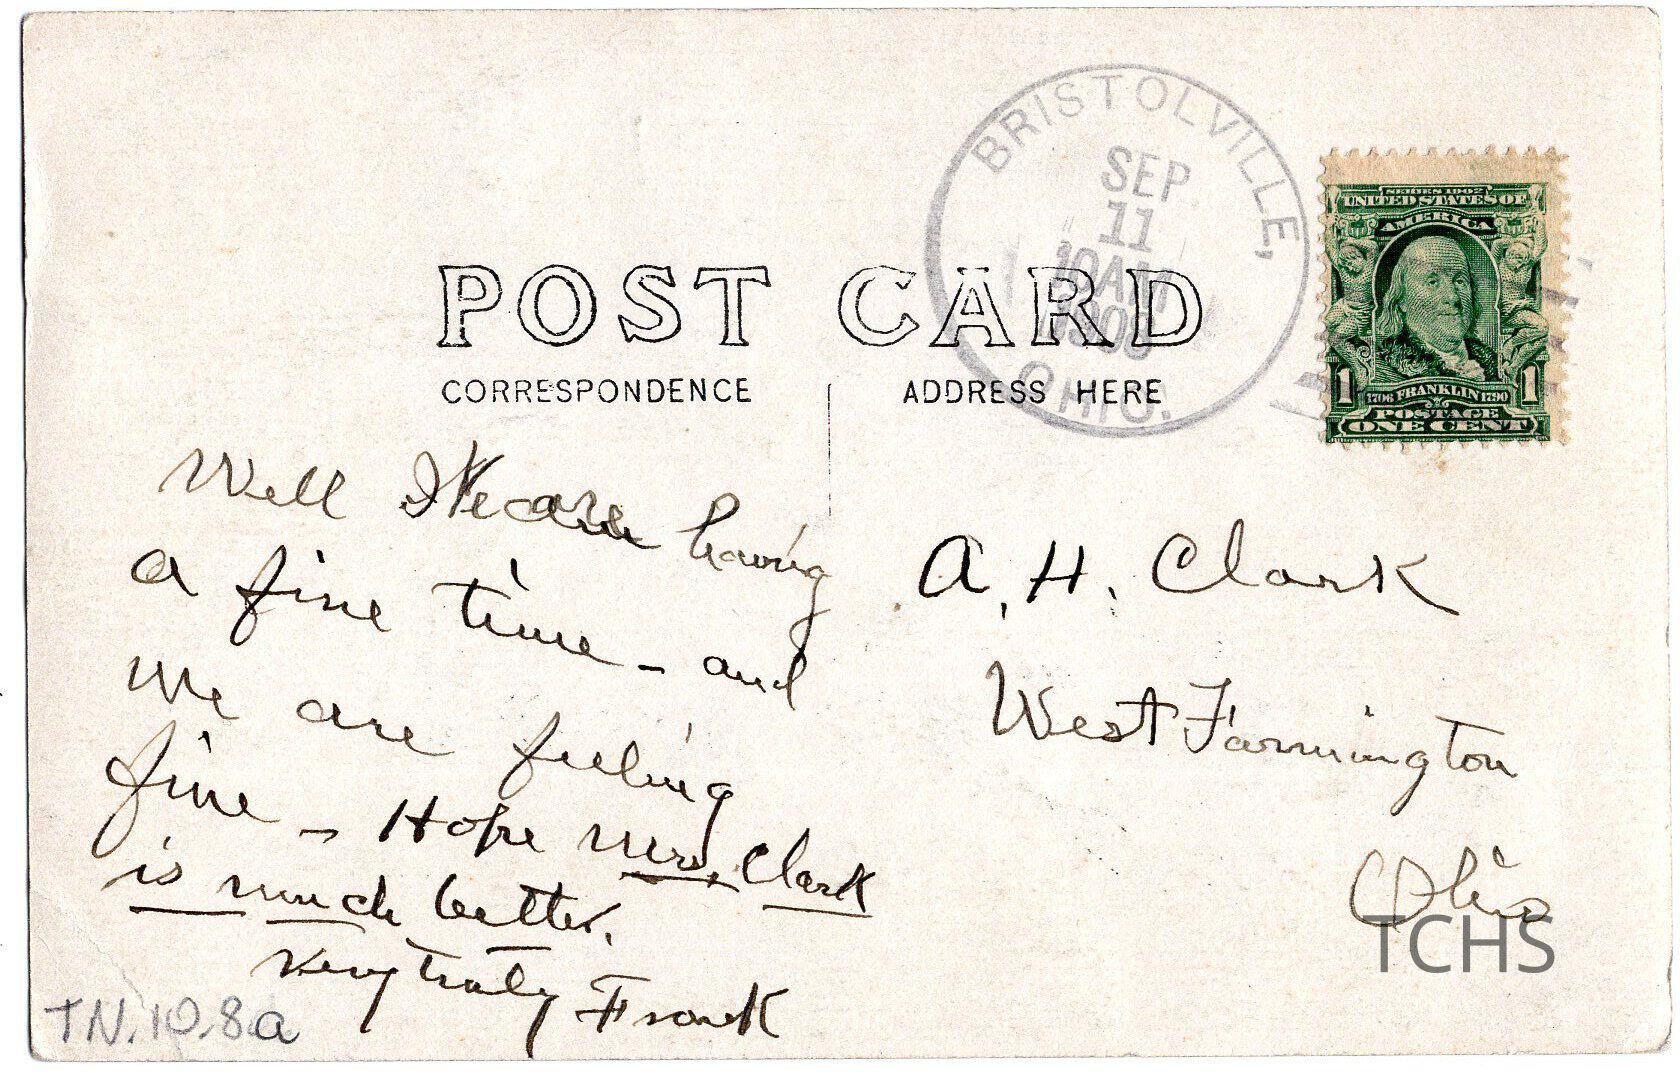 BRISTOLVILLE,
SEP
11
10AM
1908
OHIO.
SERIES 1902
UNITED STATES OF
AMERICA
1 1706 FRANKLIN 1790 1
POSTAGE
ONE CENT
POST CARD
CORRESPONDENCE
ADDRESS HERE
Well We are having
a fine time - and
We are feeling
fine - Hope Mrs. Clark
is much better.
Very truly Frank
A. H. Clark
West Farmington
Ohio
TCHS
TN.10.8a